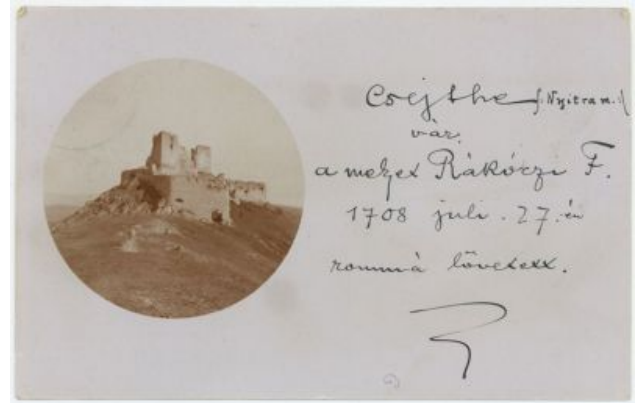 Csejthe /: Nyitram. :/
vár.
a melyet Rákóczi F.
1708 juli. 27.én
rommá lövetett.